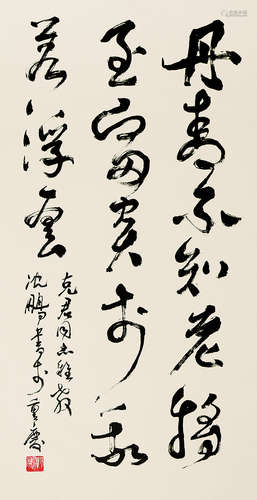 丹青不知老將
至富貴於我
若浮雲
克君同志雅教
沈鵬書於重慶